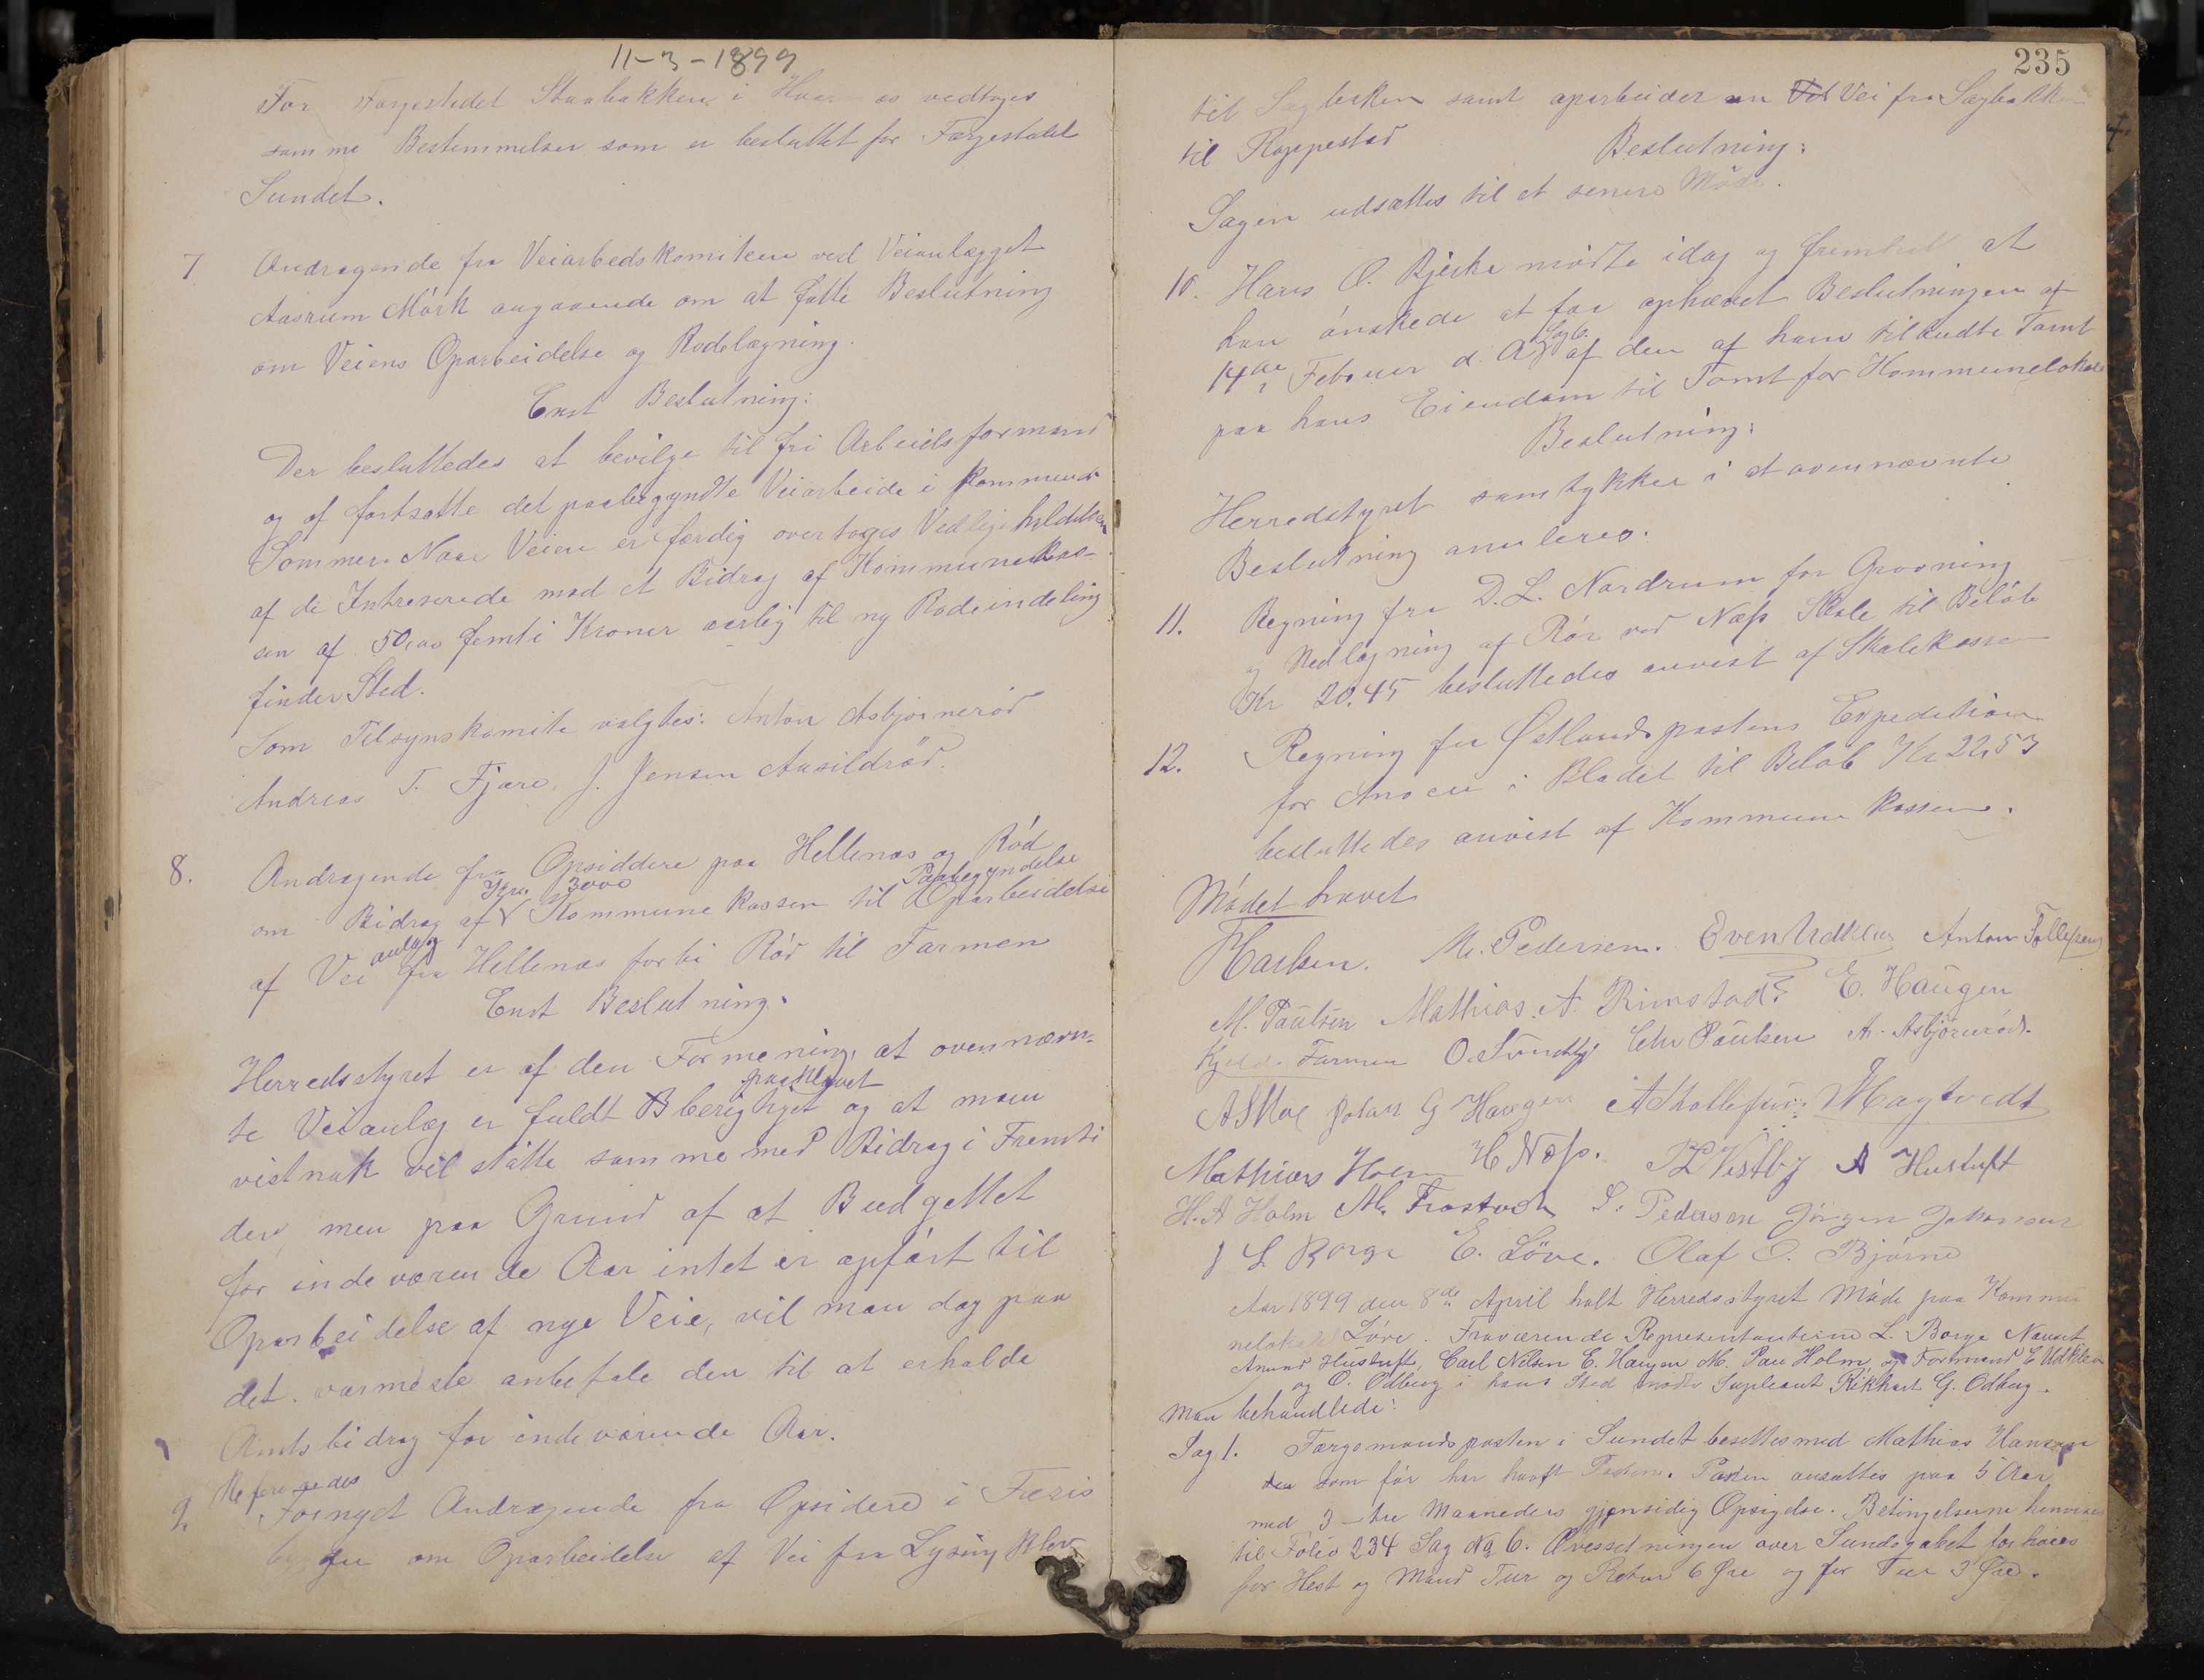 11-3-1899
For Færgestedet Staabakken i vedtages
samme Bestemmelser som er besluttet for Færgestedet
Sundet.
7 Andragende fra Veiarbedskomiteen ved Veianlægget
Aasrum Mörk angaaende om at fatte Beslutning
om Veiens Oparbeidelse og Rodelægning.
Enst Beslutning:
Der besluttedes at bevilge til fri Arbeidsformand
og af fortsætte det paabegyndte Veiarbeide i kommende
Sommer. Naar Veien er færdig overtages Vedligeholdelsen
af de Intreserede med et Bidrag af Kommunekas-
sen af 50,00 femti Kroner aarlig til ny Rodeindeling
finder Sted.
Som Tilsynskomite valgtes: Anton Asbjørnerød
Andreas T. Fjære, J. Jensen Aasildrød.
8. Andragende fra Opsiddere paa Hellenæs og Röd
om Bidrag af Kr. 3000 Kommunekassen til Paabegyndelse Oparbeidelse
af Veianlæg fra Hellenæs forbi Röd til Farmen
Enst Beslutning.
Herredsstyret er af den Formening, at ovennævn-
te Veianlæg er fuldt B berigtiget paaklævet og at man
vistnok vil støtte samme med Bidrag i Fremti
den, men paa Grund af at Budgettet
for indeværende Aar intet er opført til
Oparbeidelse af nye Veie, vil man dog paa
det varmeste anbefale den til at erholde
Amtsbidrag for indeværende Aar.
9. Refereredes
Fornyet Andragende fra Opsidere i
om Oparbeidelse af Vei fra Lysing Klev
235
til Sagbakken samt oparbeider en Vei fra Sagbakken
til Roppestad
Beslutning:
Sagen udsættes til et senere Möde.
10. Hans O. Bjerke mödte idag og fremholdt at
han önskede at faa ophævet Beslutningen af
14de Februar d. A. Sag 6. af den af ham tilbudte Tomt
paa hans Eiendom til Tomt for Kommunelokale
Beslutning:
Herredstyret samtykker i at ovennævnte
Beslutning anuleres.
11. Regning fra D. L. Nordrum for Gravning
og Nedlægning af Rör ved Næss Skole til Belöb
Kr 20.45 besluttedes anvist af Skolekassen
12. Regning fra Østlandspostens Expedetion
for Anocer i Bladet til Beløb Kr 22,53
besluttedes anvist af Kommunekassen.
Mödet hævet
Karlsen. M. Pedersen. Even Udklev Anton Tollefsen
M. Paulsen Mathias A. Rimstad E. Haugen
Kjeld Farmen O. Sundby Chr Paulsen A. Asbjörnröd.
A Skoe Johan G Haugen A Kollefsen M Hagtvedt
Mathias Holm H Næss. P L Vestby A Hustuft
H. A Holm M. Trostvedt S. Pedersen Jörgen Johansen
J L Borge E. Löve. Olaf O. Bjørnø
Aar 1899 den 8de April holt Herredsstyret Möde paa Kommu
nelokalet Löve. Fraværende Representanterne L. Borge Nauset
Amund Hustuft, Carl Nilsen E. Haugen M. Pau Holm, og Formand E Udklev
og O. Odberg i hans Sted møder Supleant Rikhart G. Odberg.
Man behandlede:
Sag 1. Færgemandsposten i Sundet besettes med Mathias Hansen
den som før har havft Posten. Posten ansættes paa 5 Aar
med 3 - tre Maaneders gjensidig Opsigdse. Betingelserne henvises
til Folio 234 Sag No 6. Oversetningen over Sundsgabet forhøies
for Hest og Mand Tur og Retur 6 Øre og for Tur 3 Øre.